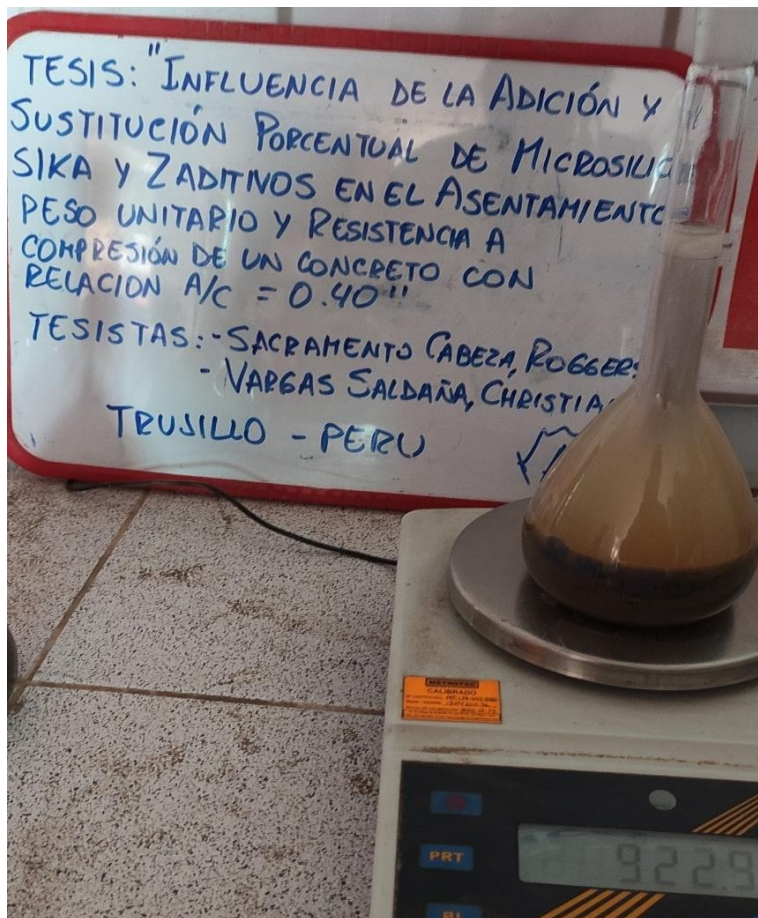 TESIS: "INFLUENCIA DE LA ADICIÓN Y
SUSTITUCIÓN PORCENTUAL DE MICROSILIC
SIKA Y ZADITIVOS EN EL ASENTAMIENTO
PESO UNITARIO Y RESISTENCIA A
COMPRESIÓN DE UN CONCRETO CON
RELACION A/C = 0.40"
TESISTAS: - SACRAMENTO CABEZA, ROGGER
- VARGAS SALDAÑA, CHRISTIA
TRUJILLO - PERU
METROTEC
CALIBRADO
PRT
922.9